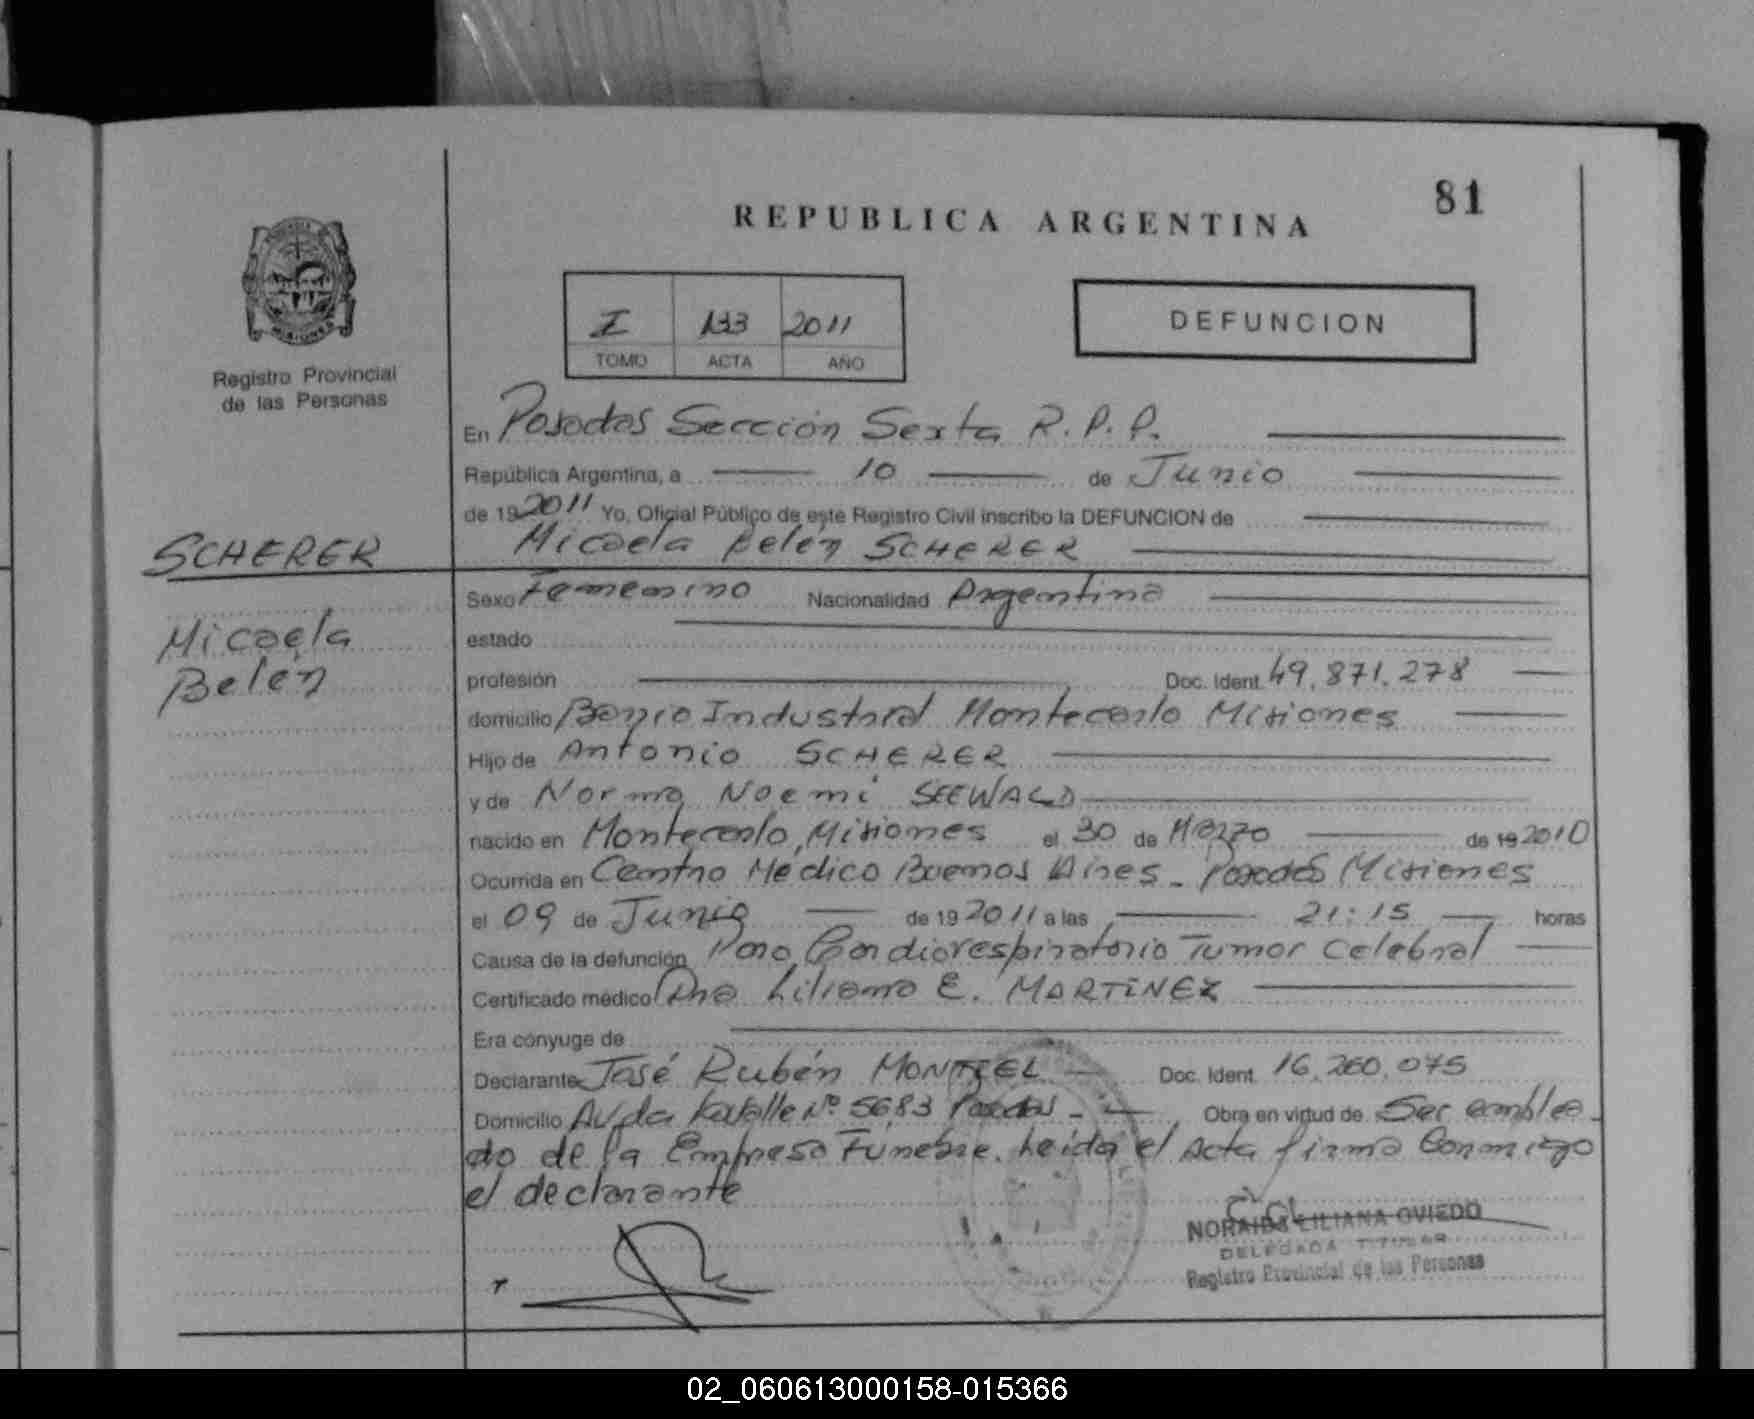 81
REPUBLICA ARGENTINA
MISIONES
Registro Provincial
de las Personas
I 133 2011
TOMO ACTA AÑO
DEFUNCION
En Posadas Sección Sexta R.P.P.
República Argentina, a 10 de Junio
de 19 2011 Yo, Oficial Público de este Registro Civil inscribo la DEFUNCION de
Micaela Belén SCHERER
SCHERER
Micaela
Belén
Sexo Femenino Nacionalidad Argentina
estado
profesión Doc. Ident. 49.871.278
domicilio Barrio Industrial Montecarlo Misiones
Hijo de Antonio SCHERER
y de Norma Noemi SEEWALD
nacido en Montecarlo, Misiones el 30 de Marzo de 19 2010
Ocurrida en Centro Medico Buenos Aires - Posadas Misiones
el 09 de Junio de 19 2011 a las 21:15 horas
Causa de la defunción Paro Cardiorespiratorio Tumor Celebral
Certificado médico Dra Liliana E. MARTINEZ
Era cónyuge de
Declarante José Rubén MONTIEL Doc. Ident. 16.260.075
Domicilio Avda Lavalle Nº 5683 Posadas - Obra en virtud de Ser emplea-
do de la Empresa Fúnebre. Leida el Acta firma Conmigo
el declarante
NORAIDA LILIANA OVIEDO
DELEGADA TITULAR
Registro Provincial de las Personas
02_060613000158-015366